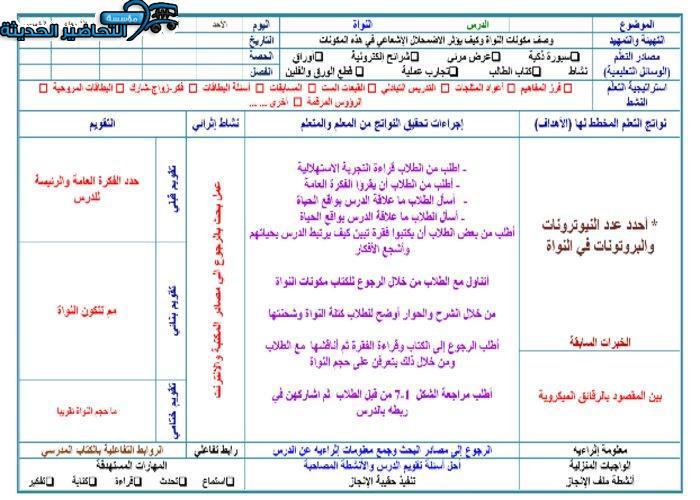 مؤسسة
التحاضير الحديثة
الموضوع الدرس النواة اليوم الأحد
التهيئة والتمهيد وصف مكونات النواة وكيف يؤثر الاضمحلال الإشعاعي في هذه المكونات التاريخ
مصادر التعلم سبورة ذكية عرض مرئي شرائح الكترونية أوراق الحصة
(الوسائل التعليمية) نشاط كتاب الطالب تجارب عملية قطع الورق والفلين الفصل
استراتيجية التعلم فرز المفاهيم أعواد المثلجات التدريس التبادلي القبعات الست المسابقات أسئلة البطاقات فكر-زواج-شارك البطاقات المروحية
النشط الرؤوس المرقمة أخرى ... ...
نواتج التعلم المخطط لها (الأهداف) إجراءات تحقيق النواتج من المعلم والمتعلم نشاط إثرائي التقويم
* أحدد عدد النيوترونات
والبروتونات في النواة
الخبرات السابقة
بين المقصود بالرقائق الميكروية
- اطلب من الطلاب قراءة التجربة الاستهلالية
- أطلب من الطلاب أن يقرؤا الفكرة العامة
- أسأل الطلاب ما علاقة الدرس بواقع الحياة
- أسأل الطلاب ما علاقة الدرس بواقع الحياة
أطلب من بعض الطلاب أن يكتبوا فقرة تبين كيف يرتبط الدرس بحياتهم
وأشجع الأفكار
أتناول مع الطلاب من خلال الرجوع للكتاب مكونات النواة
من خلال الشرح والحوار أوضح للطلاب كتلة النواة وشحنتها
أطلب الرجوع إلى الكتاب وقراءة الفقرة ثم أناقشها مع الطلاب
ومن خلال ذلك يتعرفن على حجم النواة
أطلب مراجعة الشكل 1-7 من قبل الطلاب ثم اشاركهن في
ربطه بالدرس
عمل بحث بالرجوع الى مصادر المكتبة والانترنت
تقويم قبلي
حدد الفكرة العامة والرئيسة
للدرس
تقويم بنائي
مم تتكون النواة
تقويم ختامي
ما حجم النواة تقريبا
معلومة إثرائية الرجوع إلى مصادر البحث وجمع معلومات إثراءيه عن الدرس رابط تفاعلي الروابط التفاعلية بالكتاب المدرسي
الواجبات المنزلية أحل أسئلة تقويم الدرس والأنشطة المصاحبة المهارات المستهدفة
أنشطة ملف الإنجاز تنفيذ حقيبة الإنجاز استماع تحدث قراءة كتابة تفكير